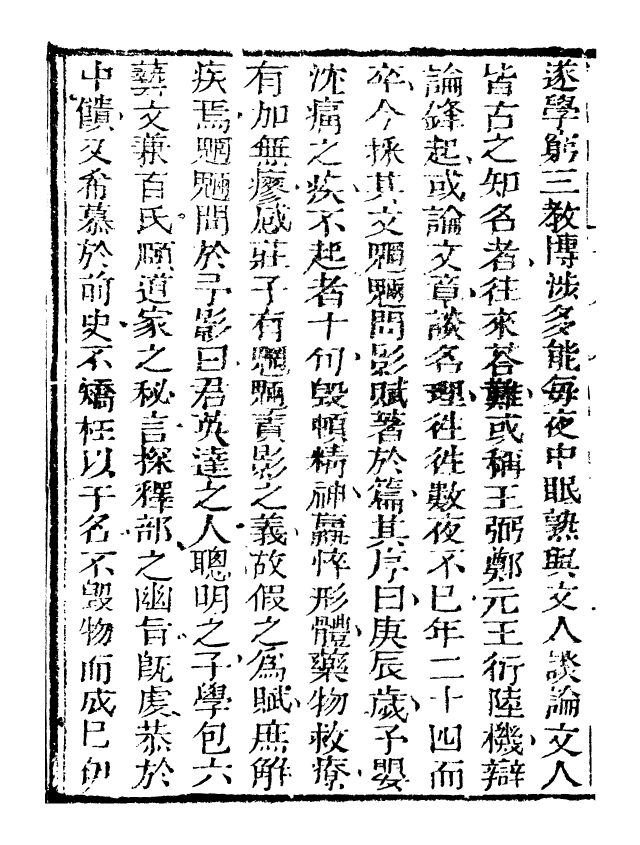 遂學窮三教博涉多能每夜中眠熟與文人談論文人
皆古之知名者往來答難或稱王弼鄭元王衍陸機辯
論鋒起或論文章談名理徃徃數夜不巳年二十四而
卒今採其文魍魎問影賦著於篇其序曰庚辰歲予嬰
沈痼之疾不起者十旬毀頓精神羸悴形體藥物救療
有加無瘳感莊子有魍魎責影之義故假之為賦庶解
疾焉魍魎問於予影曰君英達之人聰明之子學包六
藝文兼百氏賾道家之秘言探釋部之幽旨既虔恭於
中饋又希慕於前史不矯枉以于名不毀物而成巳伊